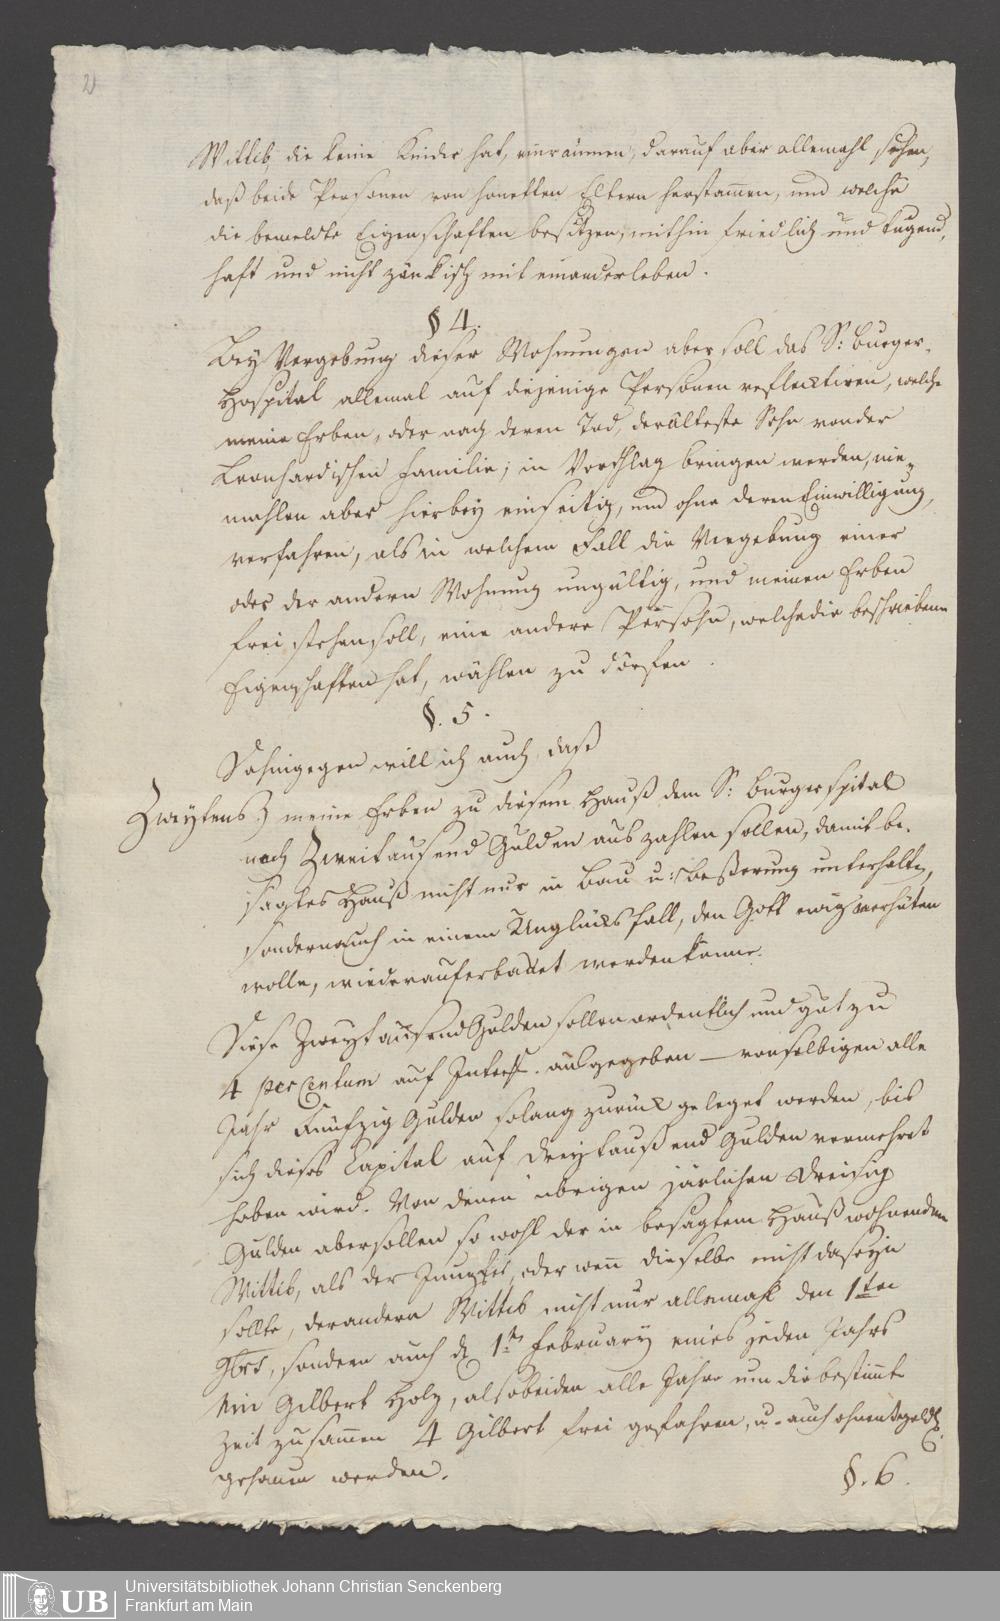 2
Wittib, die keine Kinder hat, einräumen, darauf aber allemahl sehen,
daß beide Personen von honetten Eltern herstam̅en, und welche
die bemeldte Eigenschaften besitzen, mithin friedlich und tugend,
haft und nicht zänkisch mit einander leben.
§ 4.
Bey Vergebung dieser Wohnungen aber soll das S: Burger-
Hospital allemal auf diejenige Personen reflecktiren, welche
meine Erben, oder nach deren Tod, der älteste Sohn von der
Leonhardischen Familie; in Vorschlag bringen werden, nie„
mahlen aber hierbey einseitig, und ohne deren Einwilligung,
verfahren, als in welchem Fall die Vergebung einer
oder der andern Wohnung ungültig, und meinen Erben
frei stehen soll, eine andere Persohn, welche die beschriebene
Eigenschaften hat, wählen zu dörfen.
§. 5.
Dahingegen will ich auch, daß
Zweytens.) meine Erben zu diesem Hauß dem S: Burgerspital
noch Zweitausend Gulden auszahlen sollen, damit be-
sagtes Hauß nicht nur in Bau u: Beßerung unterhalten,
sondern auch in einem Unglücksfall, den Gott ewig verhüten
wolle, wieder auferbauet werden könne.
Diese Zweytausend Gulden sollen ordentlich und gut zu
4 per Centum auf Interess. ausgegeben — von selbigen alle
Jahr Fünfzig Gulden solang zurück geleget werden, bis
sich dieses Capital auf Dreytaußend Gulden vermehrt
haben wird. Von denen übrigen järlichen Dreisig
Gulden aber sollen so wohl der in besagtem Hauß wohnenden
Wittib, als der Jungfer, oder wen̅ dieselbe nicht da seyn
sollte, der andern Wittib nicht nur allemahl den 1ten
9brs, sondern auch d 1ten February eines jeden Jahrs
ein Gilbert Holz, also beiden alle Jahre um die bestim̅te
Zeit zusam̅en 4 Gilbert frei gefahren, u. auch ohnentgeldl.
gehauen werden.
§. 6.
UB
Universitätsbibliothek Johann Christian Senckenberg
Frankfurt am Main